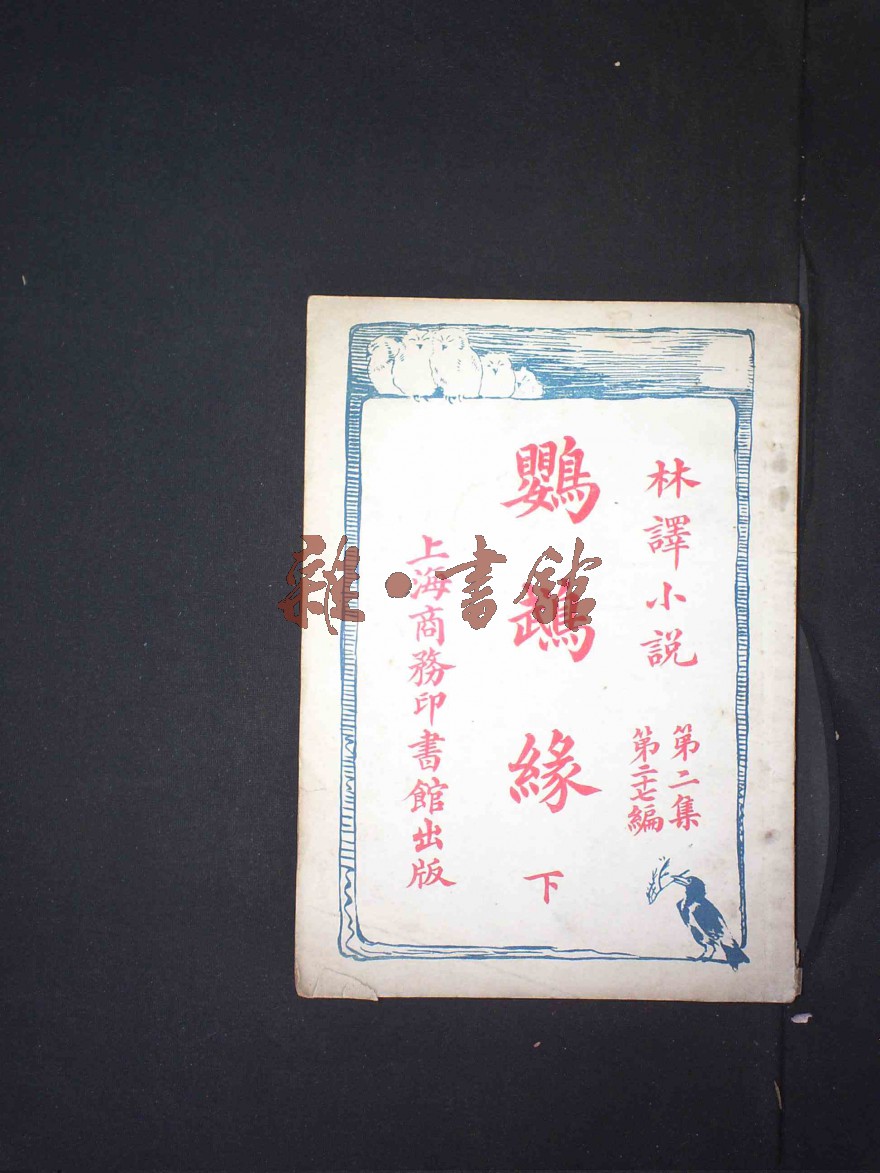 林譯小説
第二集
第二十七編
鸚鵡緣
下
上海商務印書館出版
雜·書館